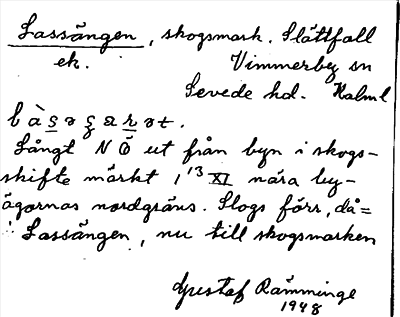 Lassängen, skogsmark. Slåttfall
ek. Vimmerby sn
Sevede hd. Kalm l
Långt N Ö ut från byn i skogs-
skifte märkt 1 13 XI nära by-
ägornas nordgräns. Slogs förr, då=
Lassängen, nu till skogsmarken
Gustaf Rämminge
1948